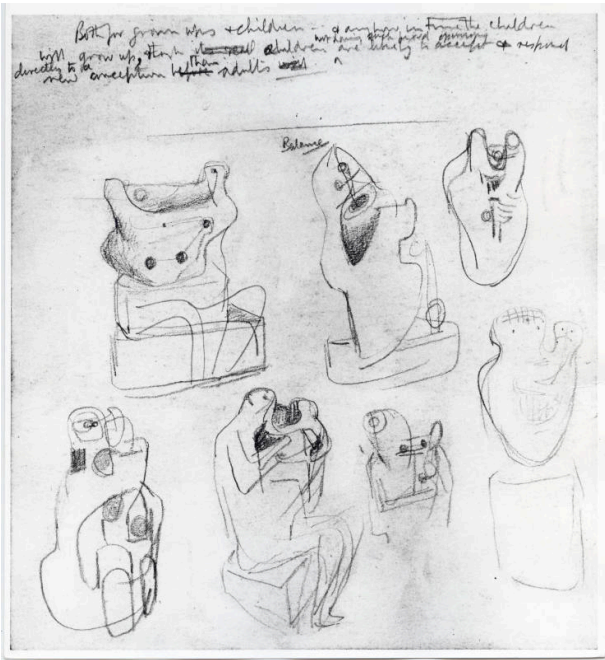 Both for grown ups & children -- & anyhow in time the children
will grow up, though children not having such fixed opinions are likely to accept & respond
directly to a
new conception than before adults
Balance